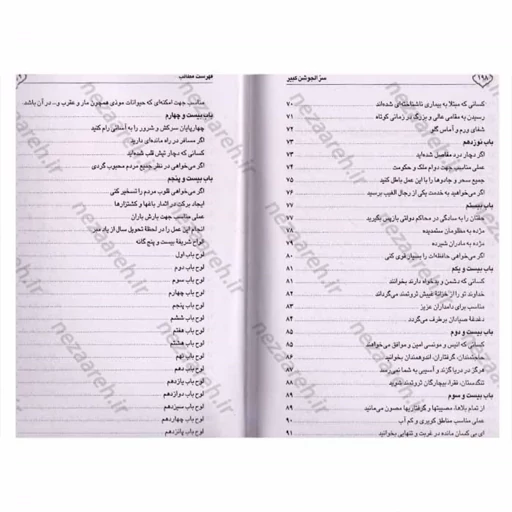 ۱۹۸ سرّ الجوشن کبیر
کسانی که مبتلا به بیماری ناشناخته‌ای شده‌اند ۷۰
رسیدن به مقامی عالی و بزرگ در زمانی کوتاه ۷۱
شفای ورم و آماس گلو ۷۲
باب نوزدهم ۷۳
اگر دچار درد مفاصل شده‌اید ۷۳
عملی مناسب جهت دوام ملک و حکومت ۷۴
جمیع سحر و جادوها را با این عمل باطل کنید ۷۵
اگر می‌خواهید به خدمت یکی از رجال الغیب برسید ۷۶
باب بیستم ۷۷
حقتان را به سادگی در محاکم دولتی بازپس بگیرید ۷۷
مژده به مظلومان ستمدیده ۷۸
مژده به مادران شیرده ۷۹
اگر می‌خواهی حافظه‌ات را بسیار قوی کنی ۸۰
باب بیست و یکم ۸۱
کسانی که دشمن و بدخواه دارند بخوانند ۸۱
خداوند تو را از خزانه غیبش ثروتمند می‌گرداند ۸۲
مناسب برای دامداران عزیز ۸۳
دغدغه صیادان برطرف می‌گردد ۸۴
باب بیست و دوم ۸۵
کسانی که انیس و مونسی امین و موافق می‌خواهند ۸۵
حاجتمندان، گرفتاران، اندوهمندان بخوانید ۸۶
هرگز در دریا گزند و آسیبی به شما نمی‌رسد ۸۷
تنگدستان، فقرا، بیچارگان ثروتمند شوید ۸۸
باب بیست و سوم ۸۹
از تمام بلاها، مصیبتها و گرفتاریها مصون می‌مانید ۸۹
عملی مناسب مناطق کویری و کم آب ۹۰
ای بی کسان مانده در غربت و تنهایی بخوانید ۹۱
فهرست مطالب
مناسب جهت امکنه‌ای که حیوانات موذی همچون مار و عقرب و... در آن باشد.
باب بیست و چهارم
چهارپایان سرکش و شرور را به آسانی رام کنید
اگر مسافر در راه مانده‌ای دارید
کسانی که دچار تپش قلب شده‌اند
اگر می‌خواهی در نظر جمیع مردم محبوب گردی
باب بیست و پنجم
اگر می‌خواهی قلوب مردم را تسخیر کنی
ایجاد برکت در اثمار باغها و کشتزارها
عملی مناسب جهت بارش باران
انجام این عمل را در لحظهٔ تحویل سال از یاد مبر
الواح شریفهٔ بیست و پنج گانه
لوح باب اول
لوح باب دوم
لوح باب سوم
لوح باب چهارم
لوح باب پنجم
لوح باب ششم
لوح باب هفتم
لوح باب هشتم
لوح باب نهم
لوح باب دهم
لوح باب یازدهم
لوح باب دوازدهم
لوح باب سیزدهم
لوح باب چهاردهم
لوح باب پانزدهم
nezaareh.ir